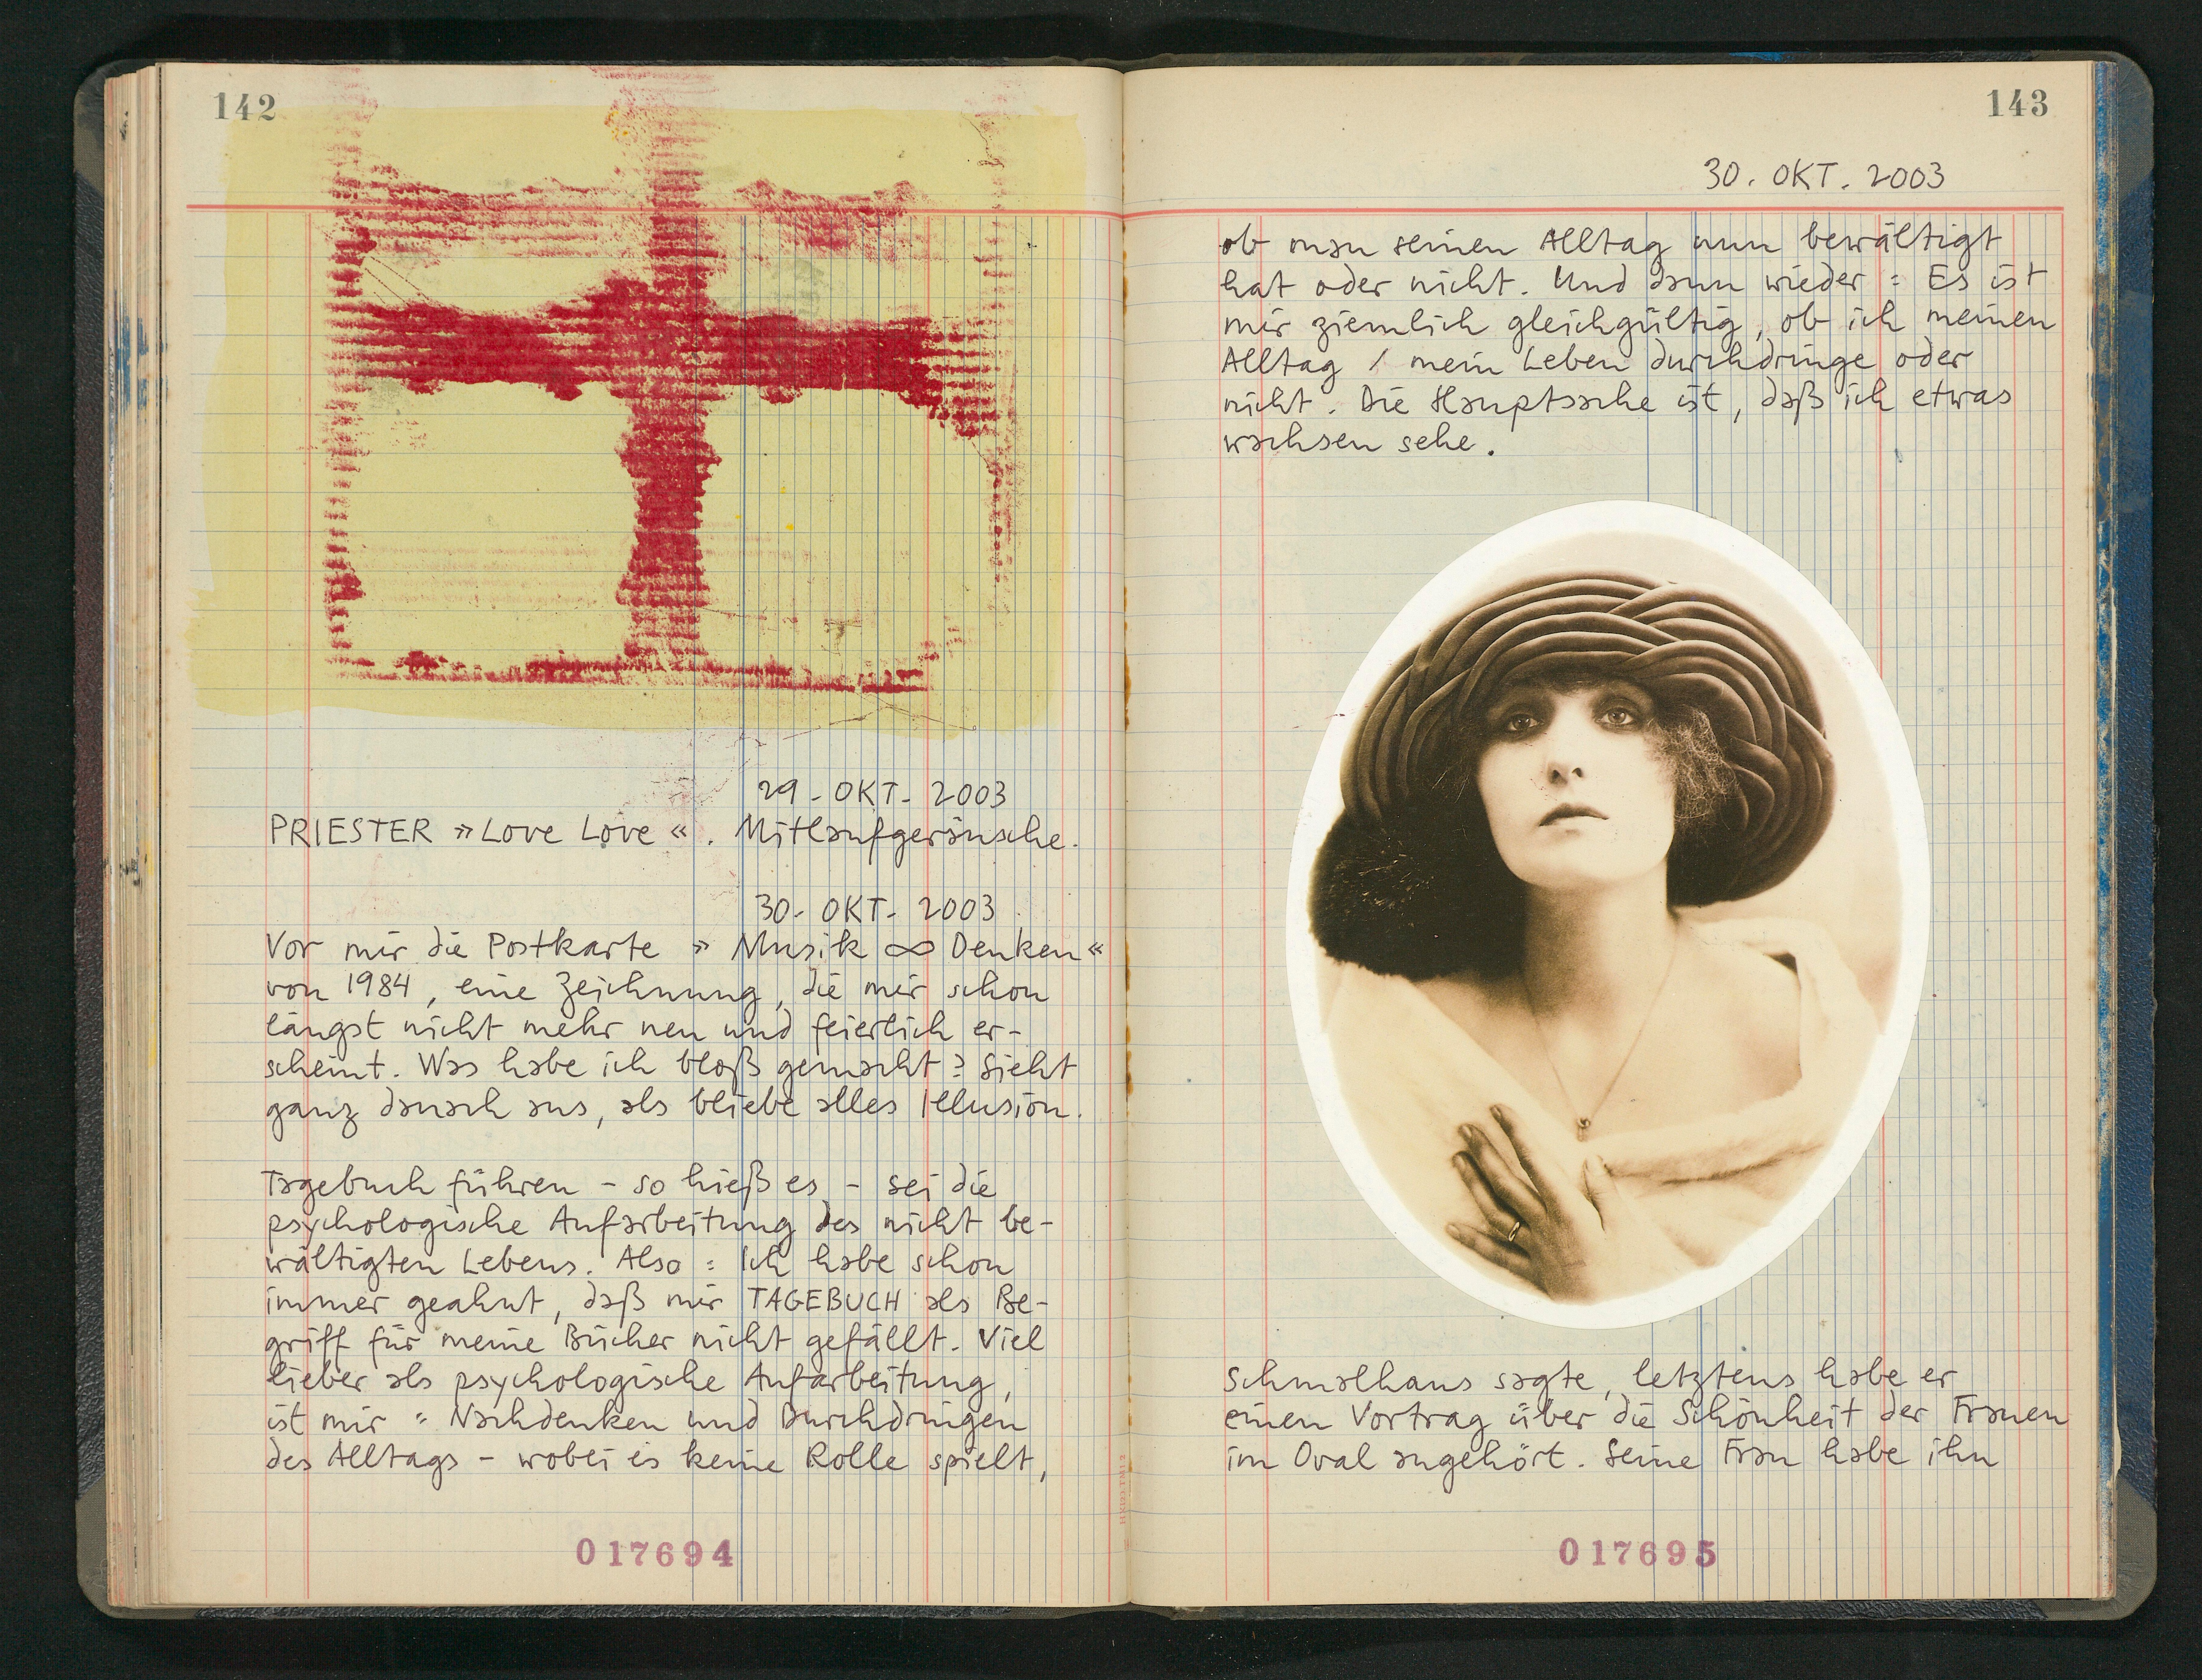 142
29. OKT. 2003
PRIESTER »Love Love«. Mitlaufgeräusche.
30. OKT. 2003
Vor mir die Postkarte »Musik ∞ Denken«
von 1984, eine Zeichnung, die mir schon
längst nicht mehr neu und feierlich er-
scheint. Was habe ich bloß gemacht? Sieht
ganz danach aus, als bliebe alles Illusion.
Tagebuch führen – so hieß es – sei die
psychologische Aufarbeitung des nicht be-
wältigten Lebens. Also: Ich habe schon
immer geahnt, daß mir TAGEBUCH als Be-
griff für meine Bücher nicht gefällt. Viel
lieber als psychologische Aufarbeitung,
ist mir: Nachdenken und Durchdringen
des Alltags – wobei es keine Rolle spielt,
017694
143
30. OKT. 2003
ob man seinen Alltag nun bewältigt
hat oder nicht. Und dann wieder: Es ist
mir ziemlich gleichgültig, ob ich meinen
Alltag / mein Leben durchdringe oder
nicht. Die Hauptsache ist, daß ich etwas
wachsen sehe.
Schmalhans sagte, letztens habe er
einen Vortrag über die Schönheit der Frauen
im Oval angehört. Seine Frau habe ihn
017695